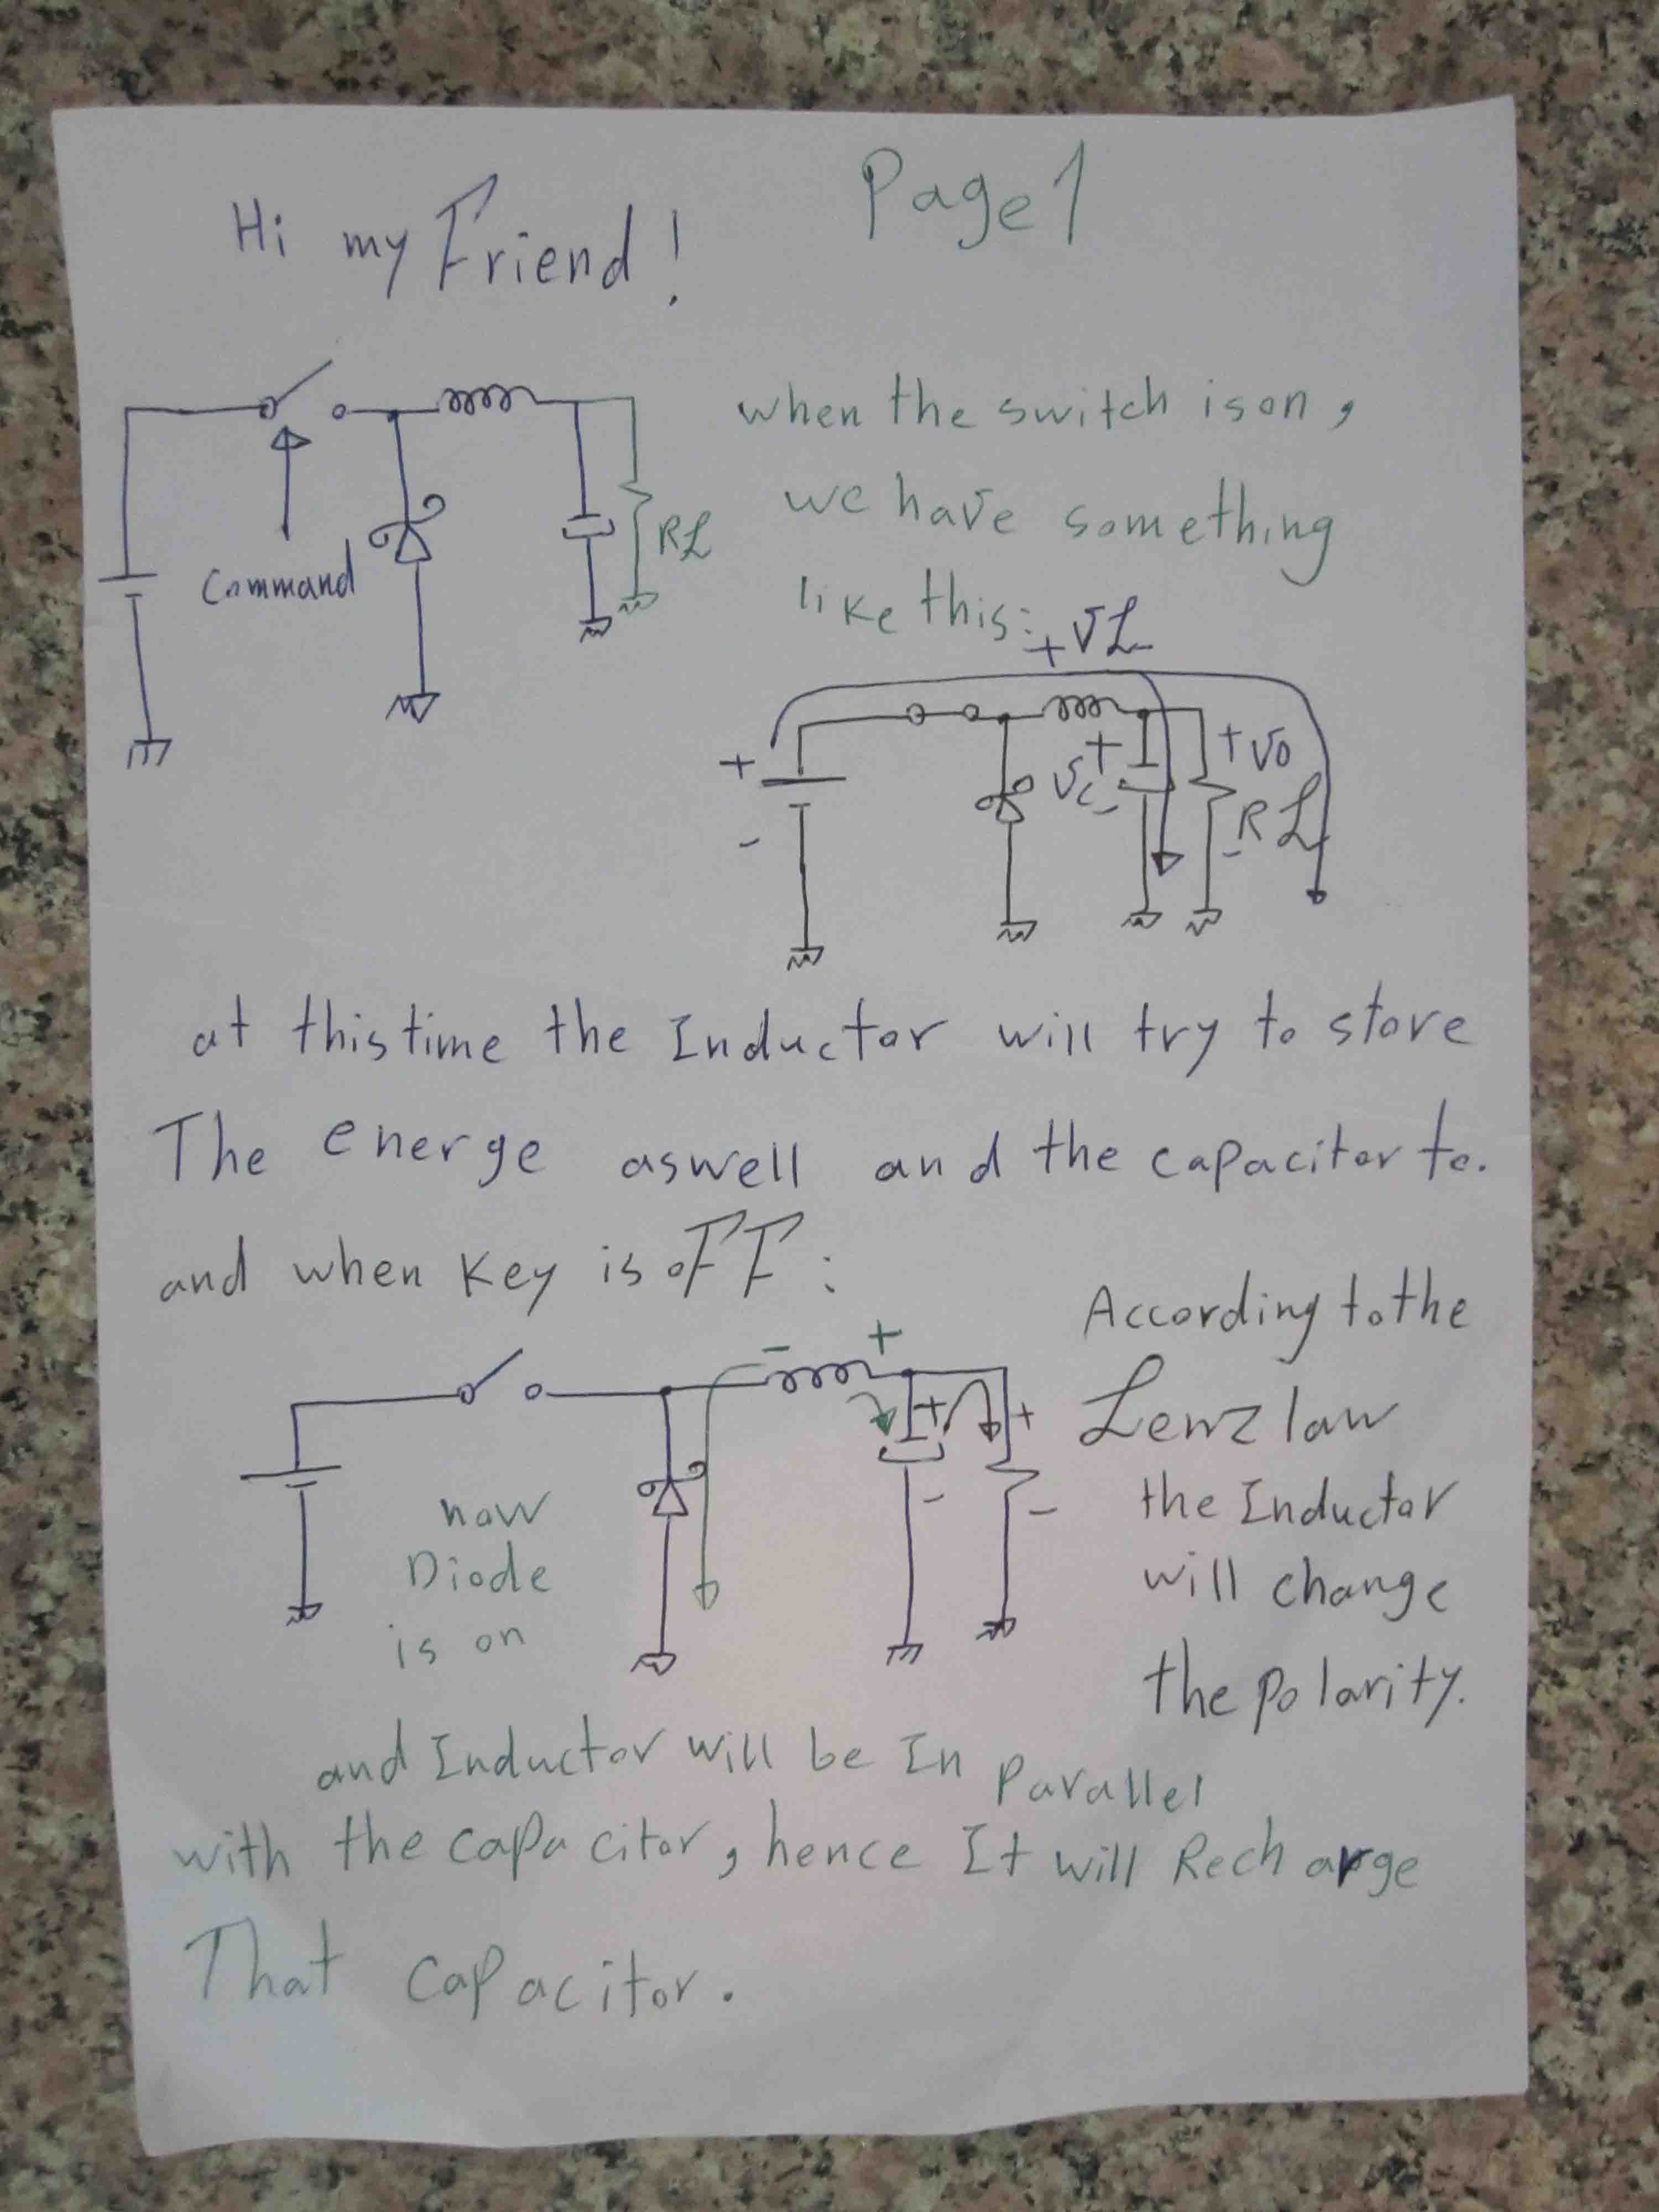 Page 1
Hi my Friend!
Command
RL
when the switch is on,
we have something
like this:
+ VL -
+
-
+
Vc
-
+ Vo
RL
-
at this time the Inductor will try to store
The energe aswell and the capacitor to.
and when Key is oFF:
- +
+
-
+
-
now
Diode
is on
According to the
Lenz law
the Inductor
will change
the polarity.
and Inductor will be In parallel
with the capacitor, hence It will Recharge
That capacitor.